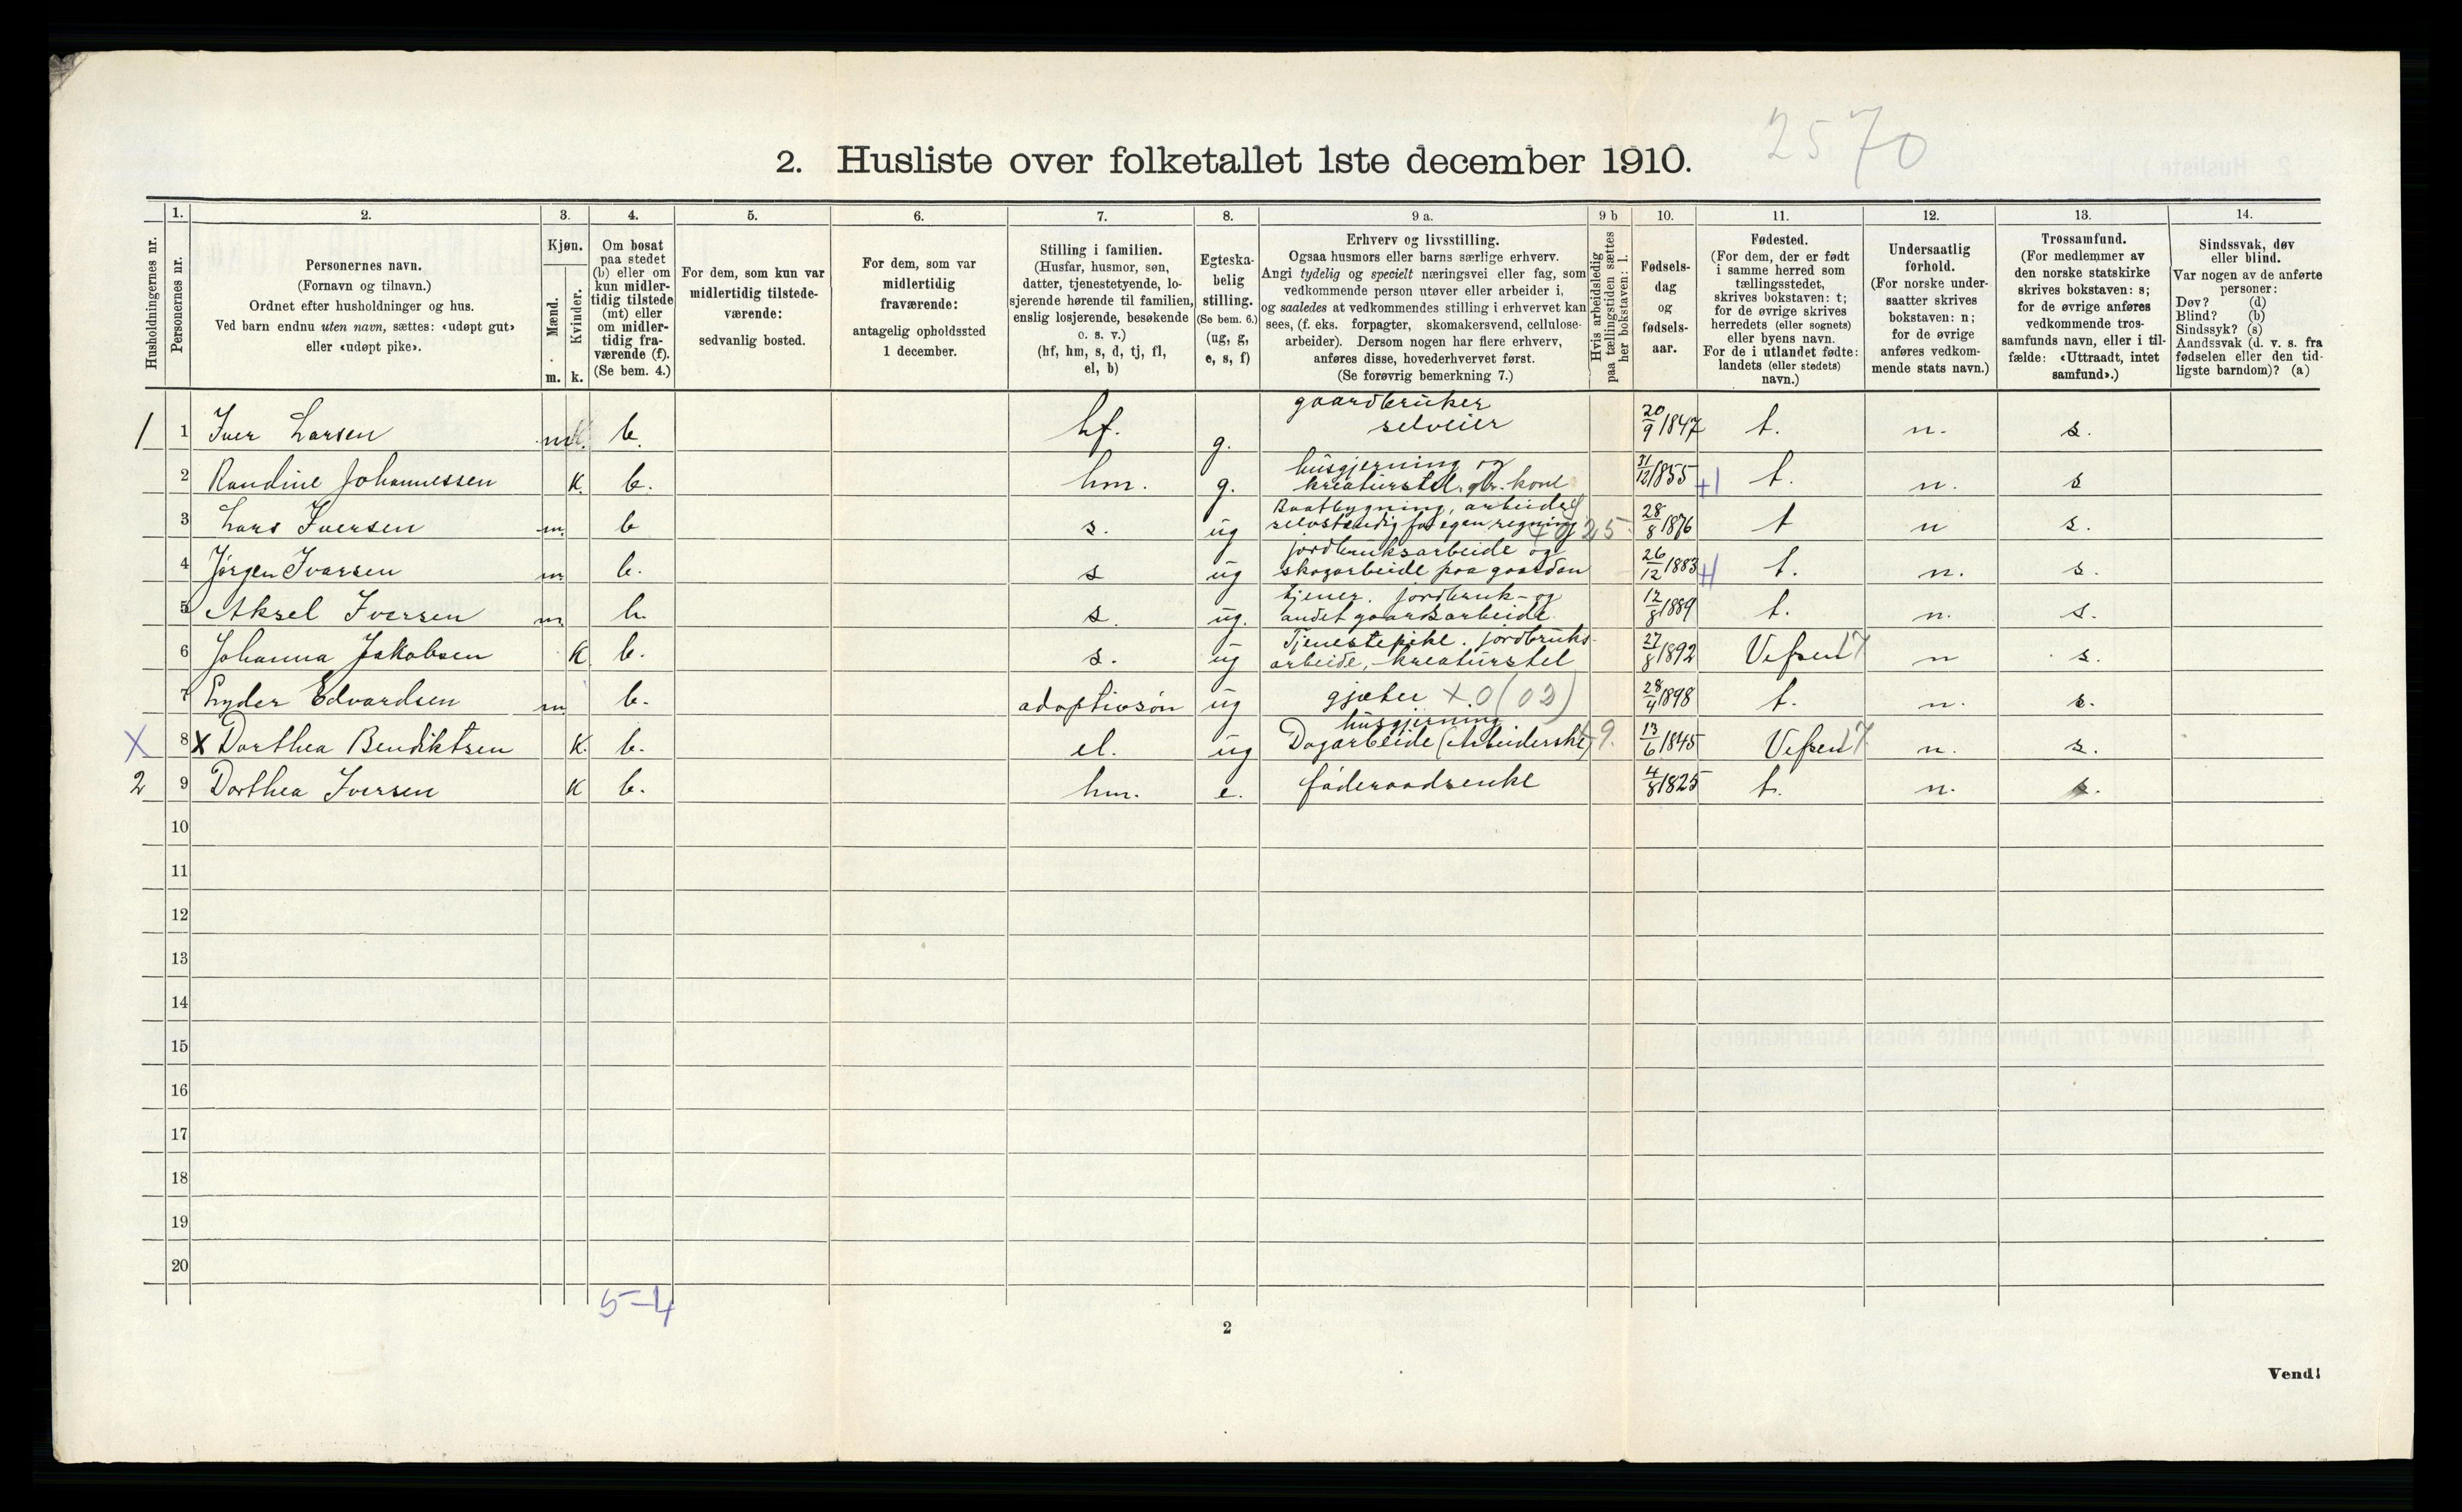 2570
2. Husliste over folketallet 1ste december 1910.
1. 2. 3. 4. 5. 6. 7. 8. 9 a. 9 b 10. 11. 12. 13. 14.
Husholdningernes nr.
Personernes nr.
Personernes navn.
(Fornavn og tilnavn.)
Ordnet efter husholdninger og hus.
Ved barn endnu uten navn, sættes: «udøpt gut»
eller «udøpt pike».
Kjøn.
Mænd.
Kvinder.
m. k.
Om bosat
paa stedet
(b) eller om
kun midler-
tidig tilstede
(mt) eller
om midler-
tidig fra-
værende (f).
(Se bem. 4.)
For dem, som kun var
midlertidig tilstede-
værende:
sedvanlig bosted.
For dem, som var
midlertidig
fraværende:
antagelig opholdssted
1 december.
Stilling i familien.
(Husfar, husmor, søn,
datter, tjenestetyende, lo-
sjerende hørende til familien,
enslig losjerende, besøkende
o. s. v.)
(hf, hm, s, d, tj, fl,
el, b)
Egteska-
belig
stilling.
(Se bem. 6.)
(ug, g,
e, s, f)
Erhverv og livsstilling.
Ogsaa husmors eller barns særlige erhverv.
Angi tydelig og specielt næringsvei eller fag, som
vedkommende person utøver eller arbeider i,
og saaledes at vedkommendes stilling i erhvervet kan
sees, (f. eks. forpagter, skomakersvend, cellulose-
arbeider). Dersom nogen har flere erhverv,
anføres disse, hovederhvervet først.
(Se forøvrig bemerkning 7.)
Hvis arbeidsledig
paa tællingstiden sættes
her bokstaven: l.
Fødsels-
dag
og
fødsels-
aar.
Fødested.
(For dem, der er født
i samme herred som
tællingsstedet,
skrives bokstaven: t;
for de øvrige skrives
herredets (eller sognets)
eller byens navn.
For de i utlandet fødte:
landets (eller stedets)
navn.)
Undersaatlig
forhold.
(For norske under-
saatter skrives
bokstaven: n;
for de øvrige
anføres vedkom-
mende stats navn.)
Trossamfund.
(For medlemmer av
den norske statskirke
skrives bokstaven: s;
for de øvrige anføres
vedkommende tros-
samfunds navn, eller i til-
fælde: «Uttraadt, intet
samfund».)
Sindssvak, døv
eller blind.
Var nogen av de anførte
personer:
Døv? (d)
Blind? (b)
Sindssyk? (s)
Aandssvak (d. v. s. fra
fødselen eller den tid-
ligste barndom)? (a)
1 1 Iver Larsen m b. hf. g. gaardbruker selveier 20/9 1847 t. n. s.
2 Randine Johannessen K. b. hm. g. husgjerning og kreaturstel. gbr. kone 31/12 1855 +1 t. n. s
3 Lars Iversen m. b s. ug Baatbygning, arbeider selvstændig for egen regning 25 28/8 1876 t n s.
4 Jørgen Ivarsen m b. s ug jordbruksarbeide og skogarbeide paa gaarden 26/12 1883 +1 t. n. s.
5 Aksel Iversen m b. s. ug. tjener. jordbruk- og andet gaardsarbeide. 12/8 1889 t. n. s.
6 Johanna Jakobsen K b. s. ug Tjenestepike. jordbruks- arbeide, kreaturstel 27/8 1892 Vefsen 17 n s.
7 Lyder Edvardsen m b. adoptivsøn ug gjæter X.0 (02) 28/4 1898 t. n. s.
X 8 X Dorthea Bendiktsen K. b. el. ug husgjerning Dagarbeide (Arbeiderske) 9. 13/6 1845 Vefsen 17 n. s.
2 9 Dorthea Iversen K b. hm. e. føderaadsenke 4/8 1825 t. n. s.
10
11
12
13
14
15
16
17
18
19
20
5-4
2
Vend!